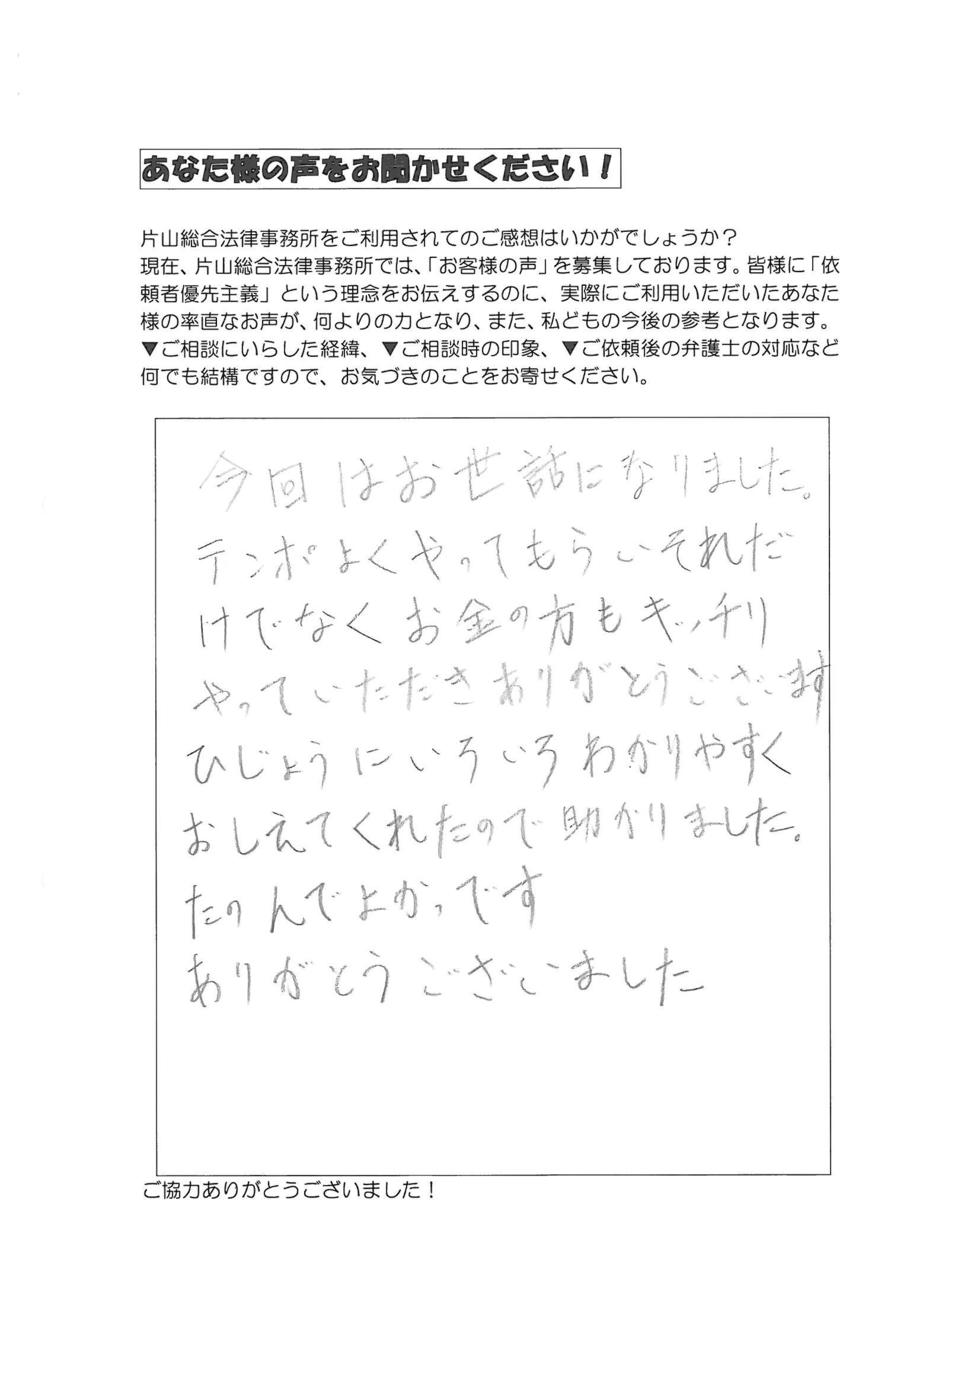 あなた様の声をお聞かせください！
片山総合法律事務所をご利用されてのご感想はいかがでしょうか？
現在、片山総合法律事務所では、「お客様の声」を募集しております。皆様に「依
頼者優先主義」という理念をお伝えするのに、実際にご利用いただいたあなた
様の率直なお声が、何よりの力となり、また、私どもの今後の参考となります。
▼ご相談にいらした経緯、▼ご相談時の印象、▼ご依頼後の弁護士の対応など
何でも結構ですので、お気づきのことをお寄せください。
今回はお世話になりました。
テンポよくやってもらいそれだ
けでなくお金の方もキッチリ
やっていただきありがとうございます
ひじょうにいろいろわかりやすく
おしえてくれたので助かりました。
たのんでよかっです
ありがとうございました
ご協力ありがとうございました！